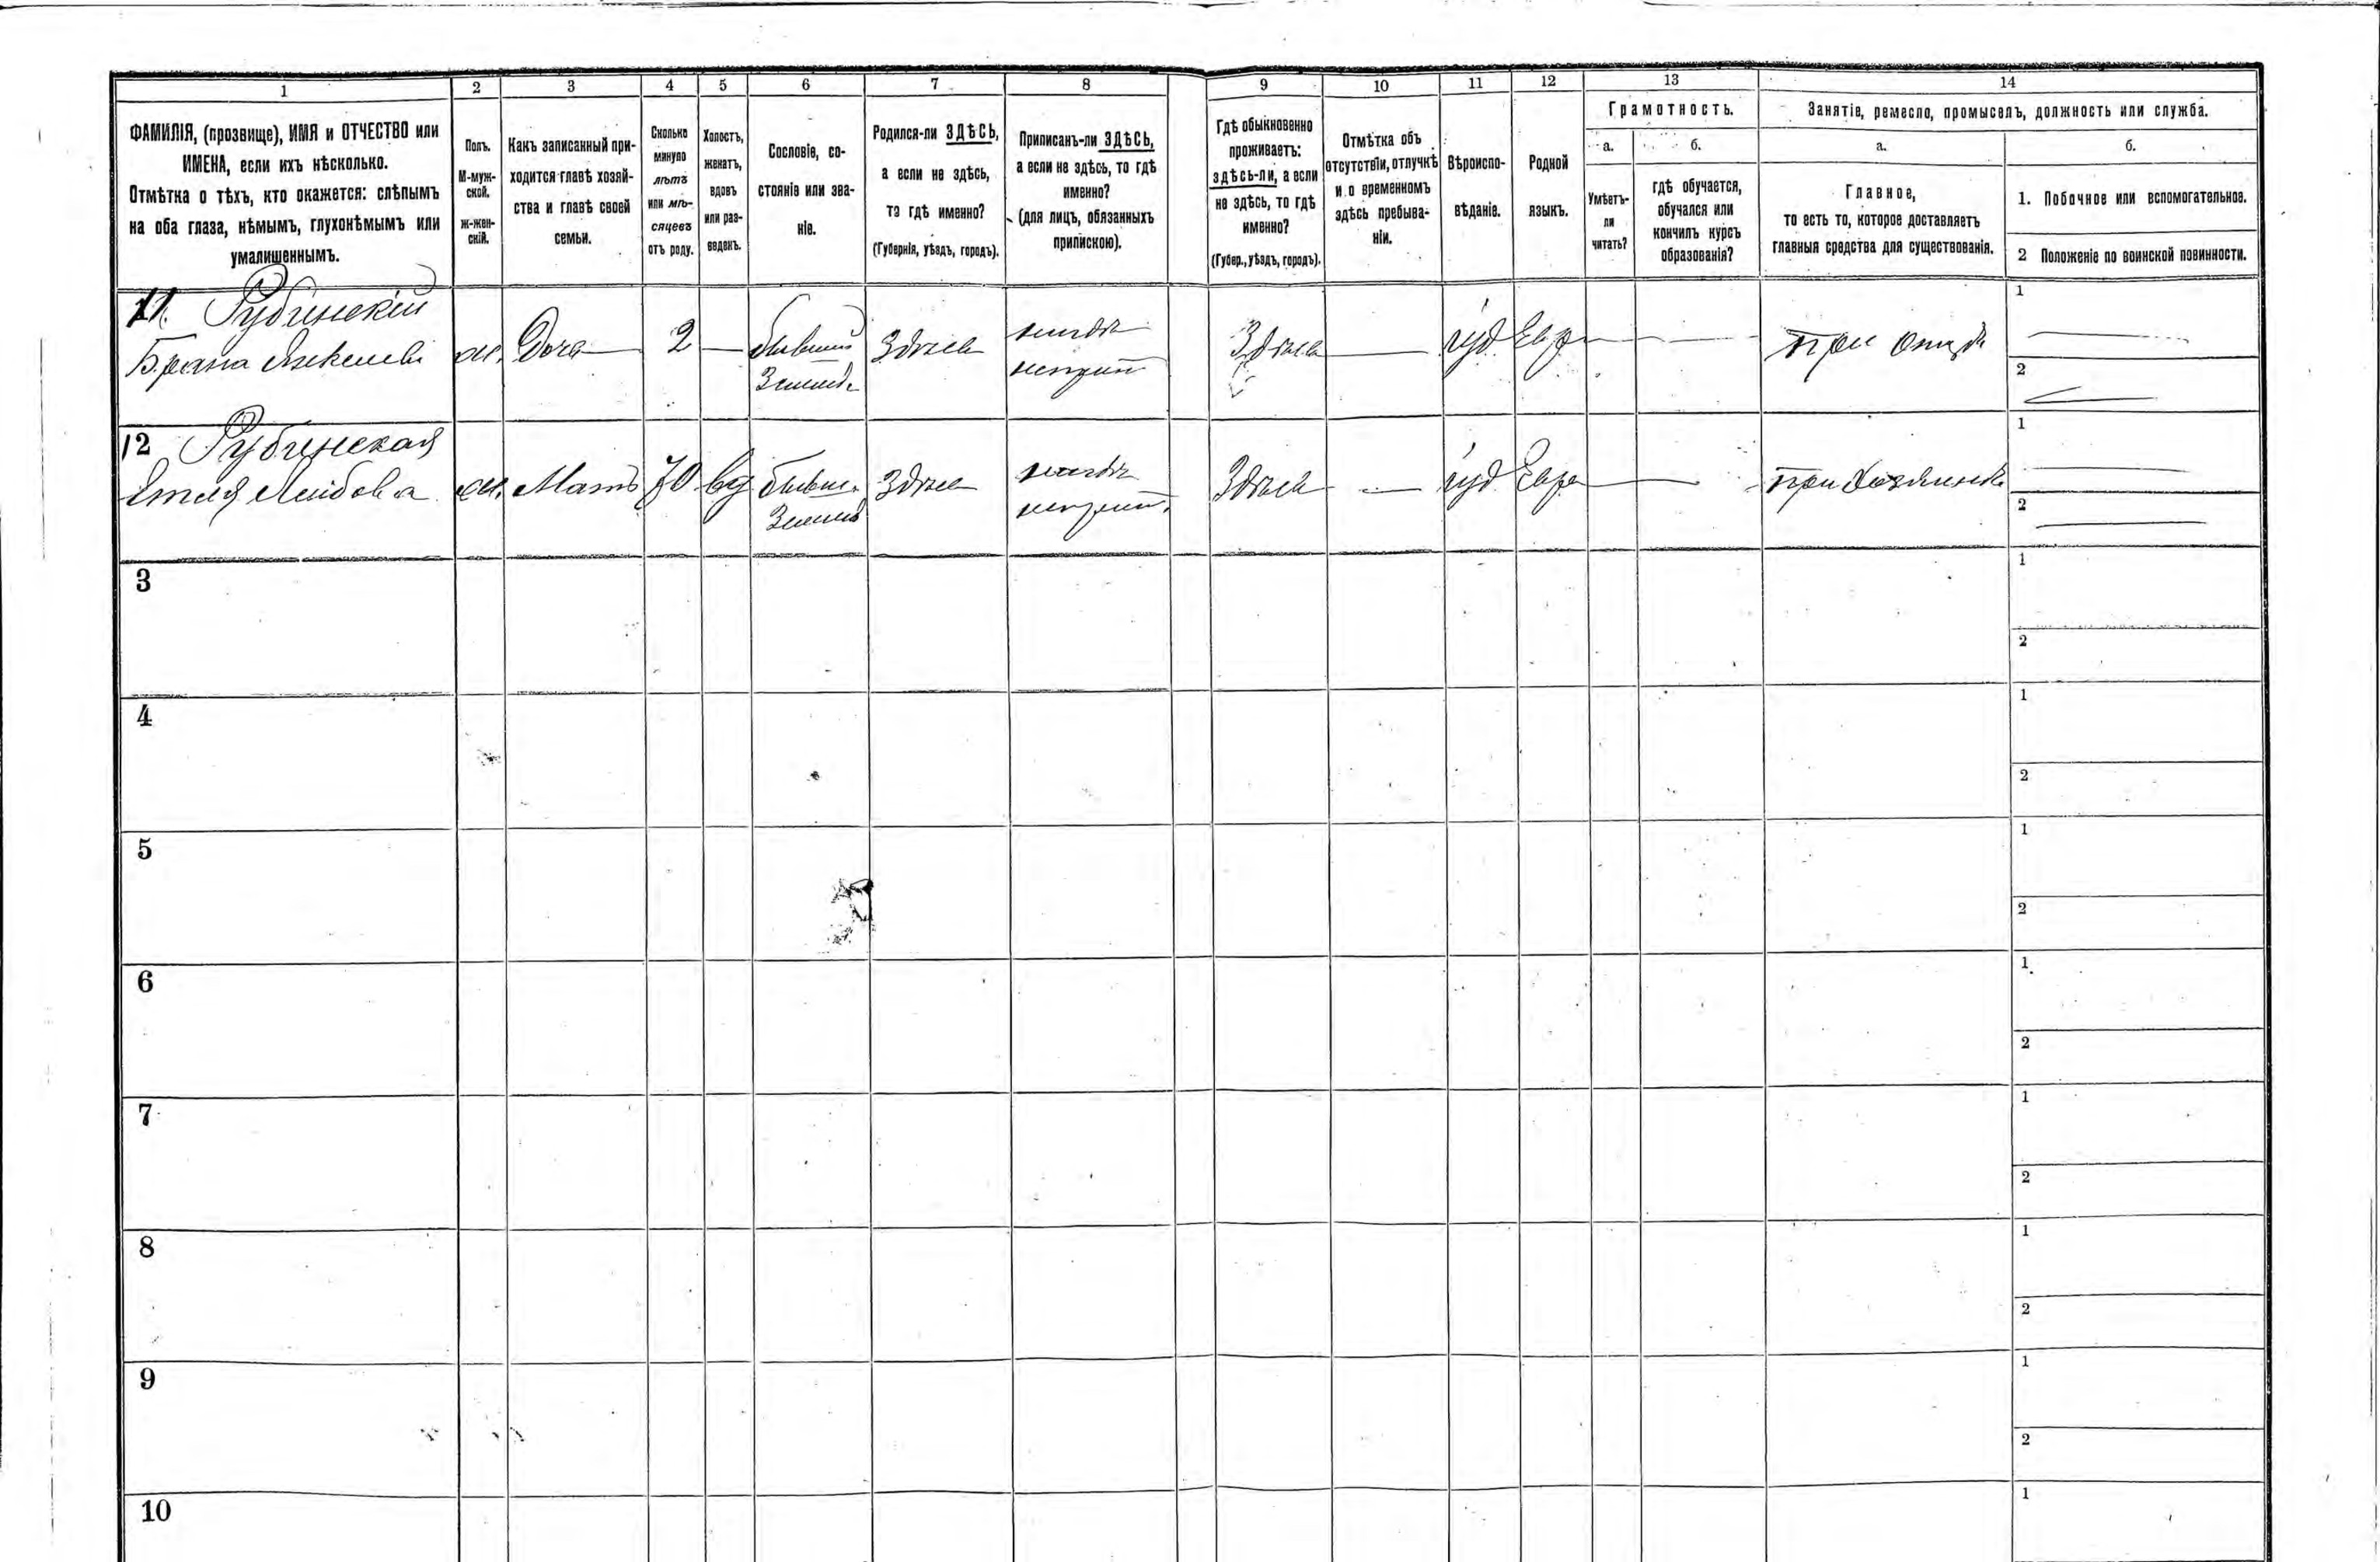 1
2
3
4
5
6
7
8
9
10
11
12
13
14
ФАМИЛІЯ, (прозвище), ИМЯ и ОТЧЕСТВО или
ИМЕНА, если ихъ нѣсколько.
Отмѣтка о тѣхъ, кто окажется: слѣпымъ
на оба глаза, нѣмымъ, глухонѣмымъ или
умалишеннымъ.
Полъ.
М-муж-
ской.
ж-жен-
скій.
Какъ записанный при-
ходится главѣ хозяй-
ства и главѣ своей
семьи.
Сколько
минуло
лѣтъ
или мѣ-
сяцевъ
отъ роду.
Холостъ,
женатъ,
вдовъ
или раз-
веденъ.
Сословіе, со-
стояніе или зва-
ніе.
Родился-ли ЗДѢСЬ,
а если не здѣсь,
то гдѣ именно?
(Губернія, уѣздъ, городъ).
Приписанъ-ли ЗДѢСЬ,
а если не здѣсь, то гдѣ
именно?
(для лицъ, обязанныхъ
припискою).
Гдѣ обыкновенно
проживаетъ:
здѣсь-ли, а если
не здѣсь, то гдѣ
именно?
(Губер., уѣздъ, городъ).
Отмѣтка объ
отсутствіи, отлучкѣ
и о временномъ
здѣсь пребыва-
ніи.
Вѣроиспо-
вѣданіе.
Родной
языкъ.
Грамотность.
а.
Умѣетъ-
ли
читать?
б.
гдѣ обучается,
обучался или
кончилъ курсъ
образованія?
Занятіе, ремесло, промыселъ, должность или служба.
а.
Главное,
то есть то, которое доставляетъ
главныя средства для существованія.
б.
1. Побочное или вспомогательное.
2 Положеніе по воинской повинности.
11. Рубинскій
ж. Доч 2 Здѣсь Здѣсь іуд Евр при отцѣ
1
2
12 Рубинская
Лейбова ж. Мать 70 вд Здѣсь Здѣсь іуд Евре
1
2
3
1
2
4
1
2
5
1
2
6
1
2
7
1
2
8
1
2
9
1
2
10
1